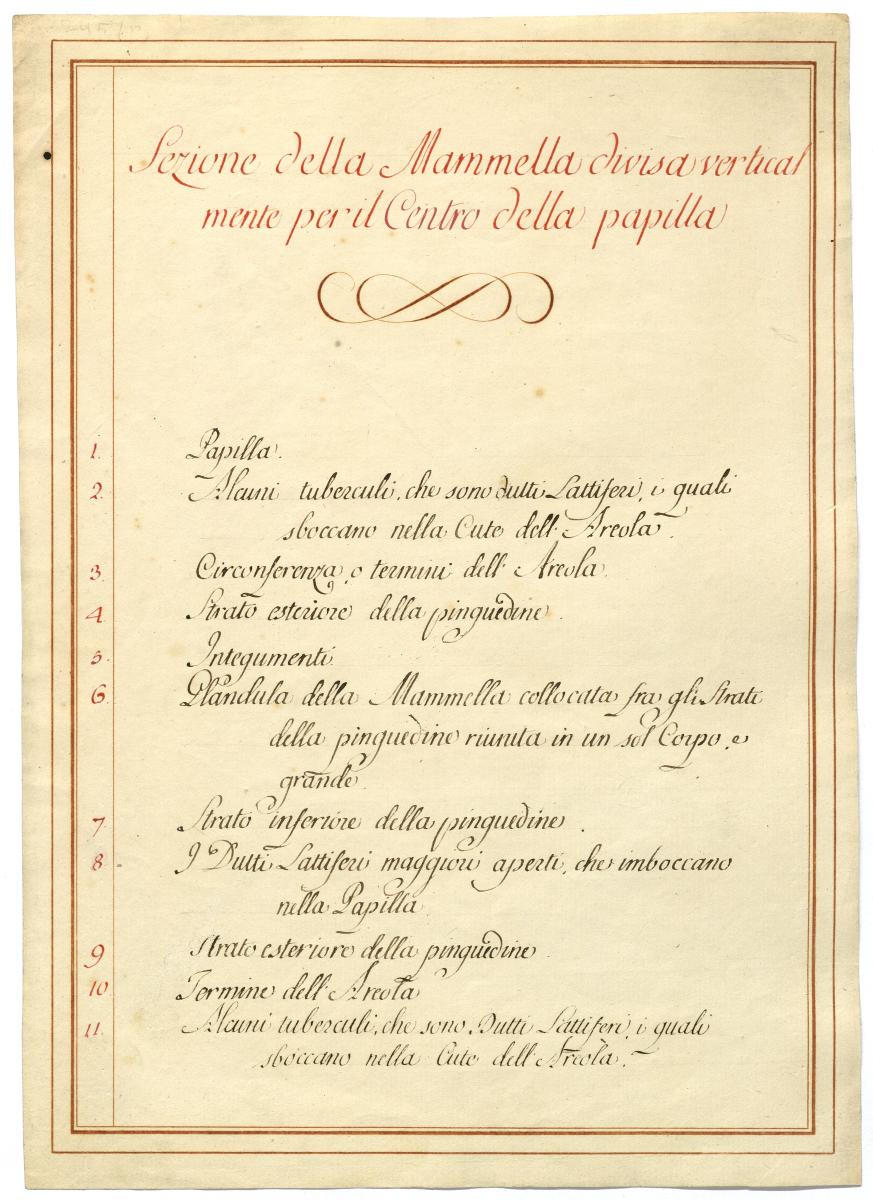 Sezione della Mammella divisa vertical
mente per il Centro della papilla
1. Papilla.
2. Alcuni tuberculi, che sono dutti Lattiferi, i quali
sboccano nella Cute dell' Areola.
3. Circonferenza, o termini dell' Areola.
4. Strato esteriore della pinguedine.
5. Integumenti.
6. Glandula della Mammella collocata fra gli Strati
della pinguedine riunita in un sol Corpo, e
grande.
7. Strato inferiore della pinguedine.
8. I Dutti Lattiferi maggiori aperti, che imboccano
nella Papilla.
9. Strato esteriore della pinguedine.
10. Termine dell' Areola
11. Alcuni tuberculi, che sono Dutti Lattiferi, i quali
sboccano nella Cute dell' Areola.